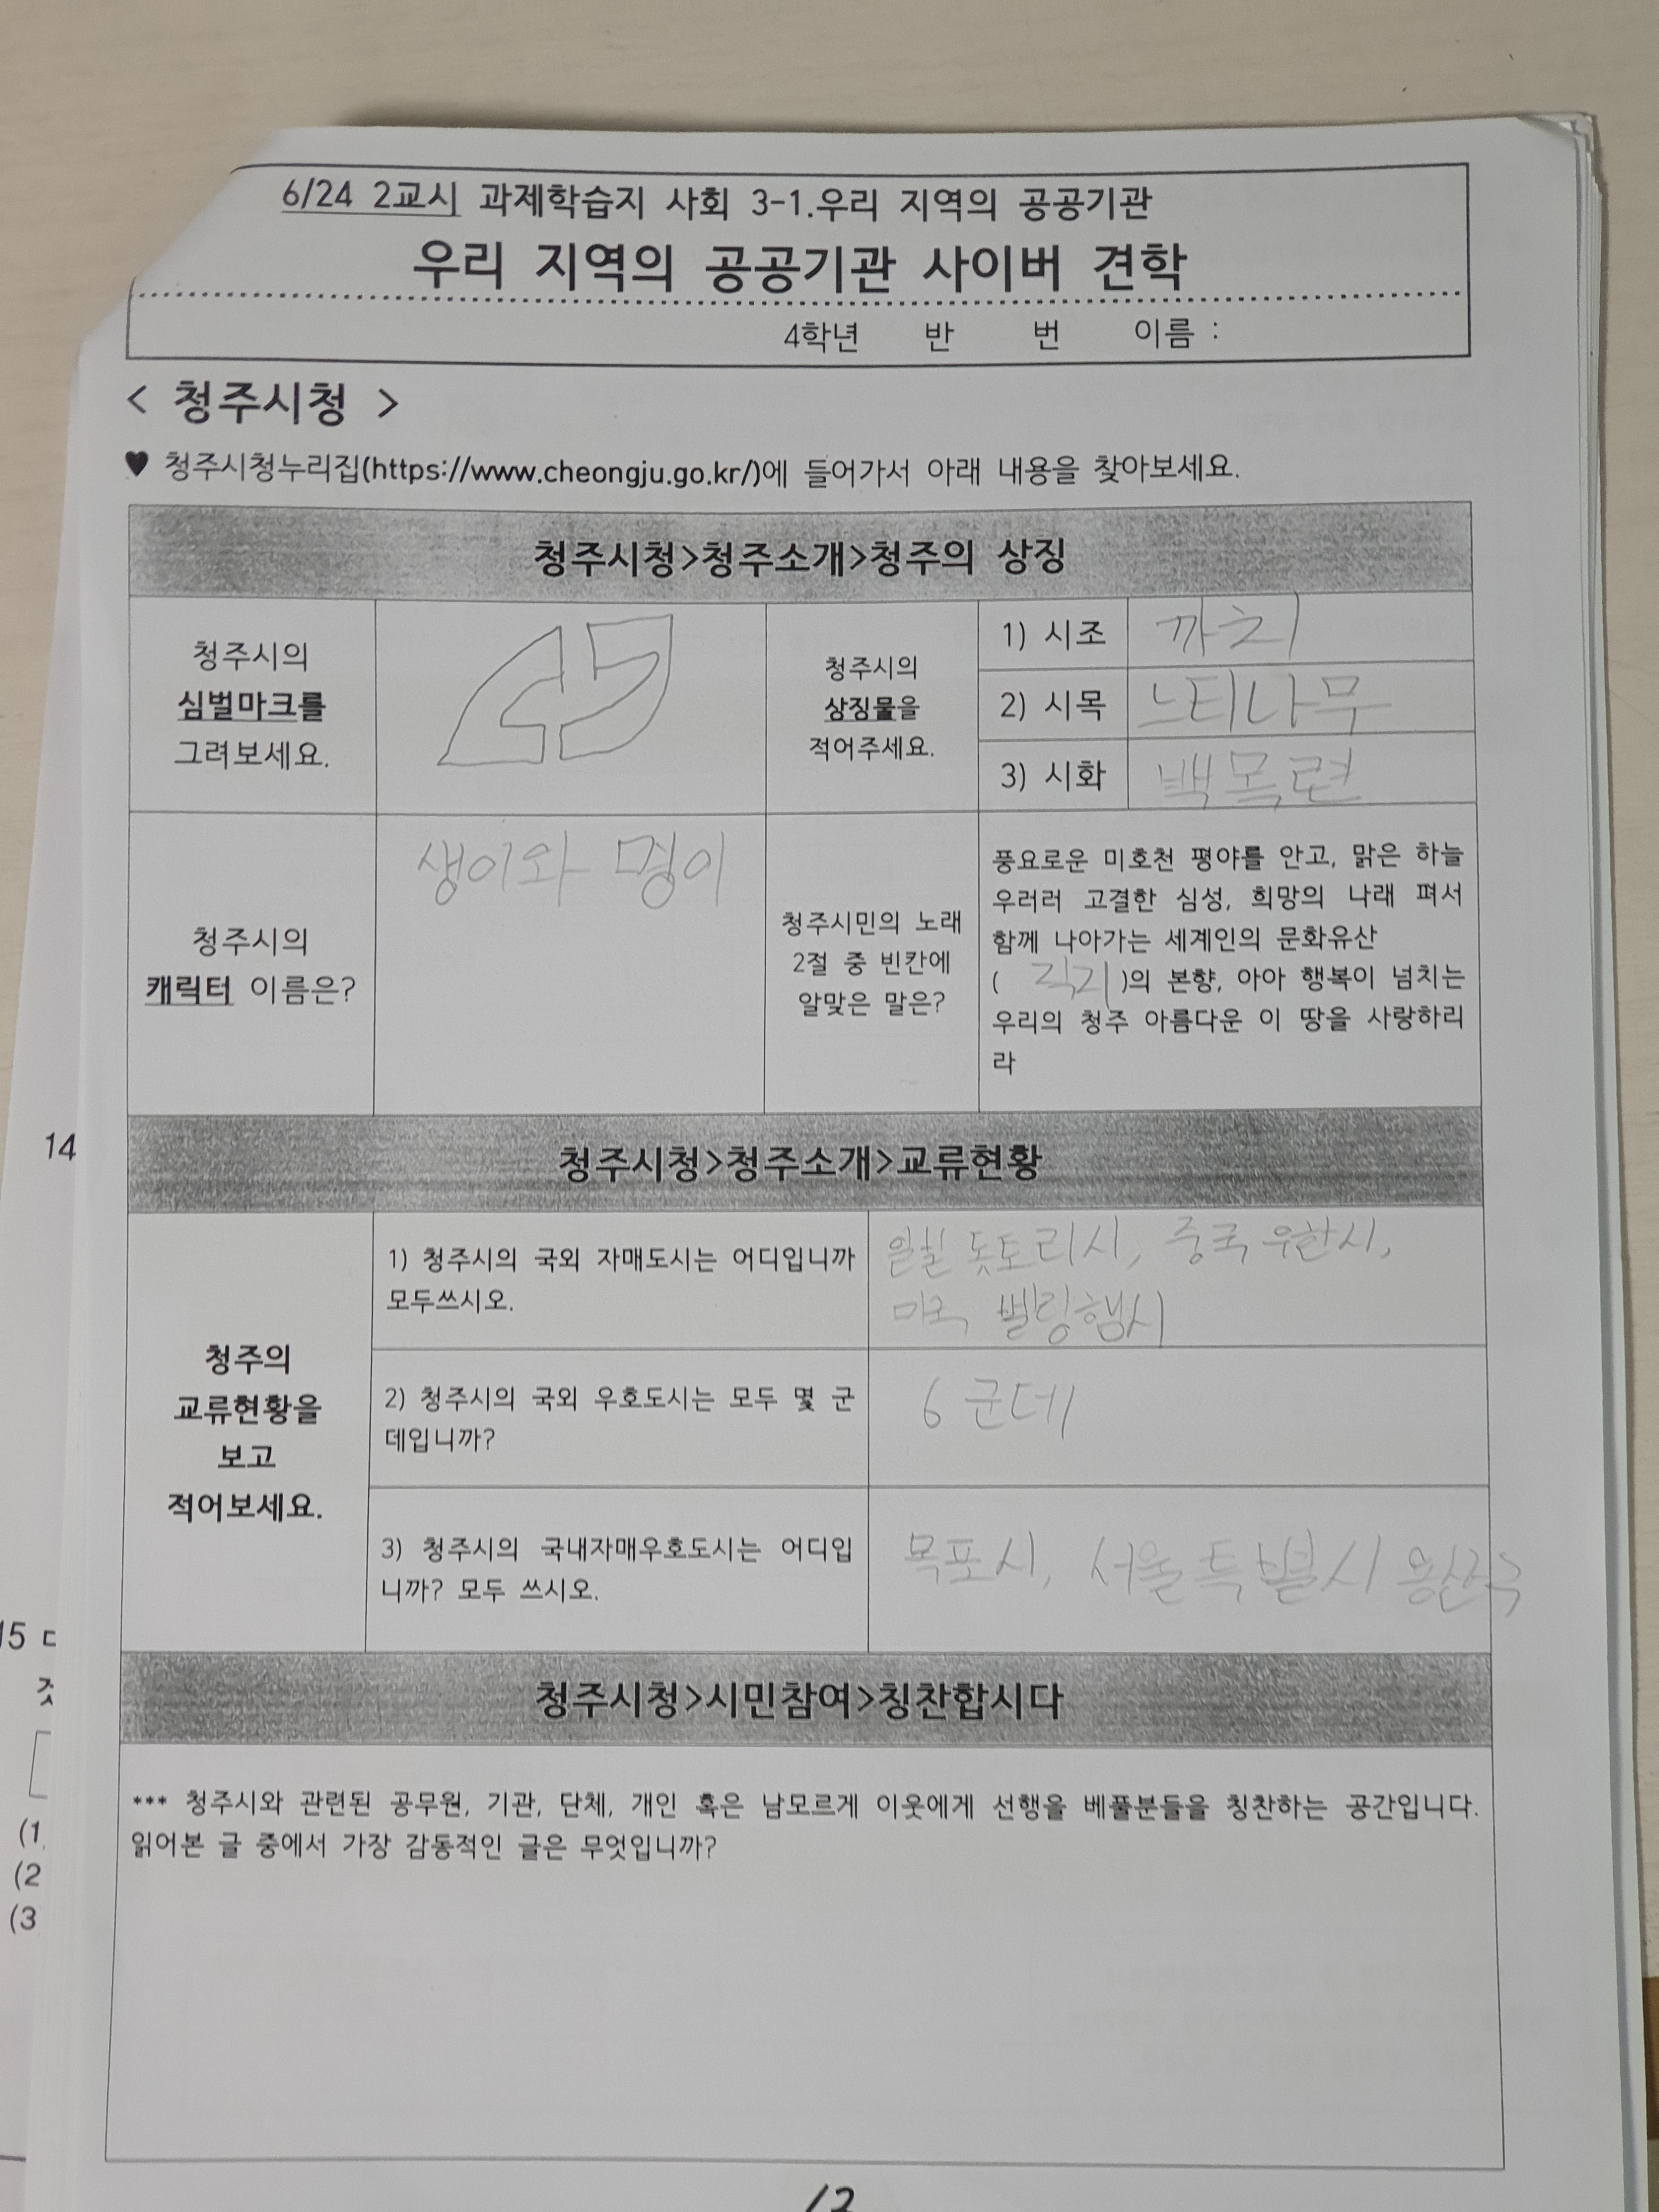 6/24 2교시 과제학습지 사회 3-1.우리 지역의 공공기관
우리 지역의 공공기관 사이버 견학
4학년 반 번 이름 :
< 청주시청 >
♥ 청주시청누리집(https://www.cheongju.go.kr/)에 들어가서 아래 내용을 찾아보세요.
청주시청>청주소개>청주의 상징
청주시의
심벌마크를
그려보세요.
청주시의
상징물을
적어주세요.
1) 시조 까치
2) 시목 느티나무
3) 시화 백목련
청주시의
캐릭터 이름은?
생이와 명이
청주시민의 노래
2절 중 빈칸에
알맞은 말은?
풍요로운 미호천 평야를 안고, 맑은 하늘
우러러 고결한 심성, 희망의 나래 펴서
함께 나아가는 세계인의 문화유산
( 직지 )의 본향, 아아 행복이 넘치는
우리의 청주 아름다운 이 땅을 사랑하리
라
청주시청>청주소개>교류현황
청주의
교류현황을
보고
적어보세요.
1) 청주시의 국외 자매도시는 어디입니까
모두쓰시오.
일본 돗토리시, 중국 우한시,
미국 벨링햄시
2) 청주시의 국외 우호도시는 모두 몇 군
데입니까?
6 군데
3) 청주시의 국내자매우호도시는 어디입
니까? 모두 쓰시오.
목포시, 서울특별시 용산구
청주시청>시민참여>칭찬합시다
*** 청주시와 관련된 공무원, 기관, 단체, 개인 혹은 남모르게 이웃에게 선행을 베풀분들을 칭찬하는 공간입니다.
읽어본 글 중에서 가장 감동적인 글은 무엇입니까?
14
15
(1
(2
(3